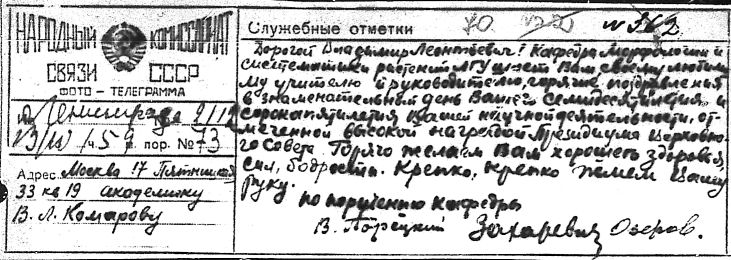 НАРОДНЫЙ КОМИССАРИАТ
СВЯЗИ СССР
ФОТО – ТЕЛЕГРАММА
Ленинграда
ч. 5 пор. № 73
Адрес Москва 17 Пятницкая
33 кв 19 академику
В. Л. Комарову
Служебные отметки 70 № 562
Дорогой Владимир Леонтьевич! Кафедра Морфологии и
систематики растений ЛГУ шлет Вам своему любимо
му учителю и руководителю, горячие поздравления
в знаменательный день Вашего семидесятилетия и
сорокапятилетия Вашей научной деятельности, от-
меченной высокой наградой Президиума Верховно-
го Совета. Горячо желаем Вам хорошего здоровья,
сил, бодрости. Крепко, крепко жмем Вашу
руку.
по поручению Кафедры
В. Порецкий Захаревич Озеров.